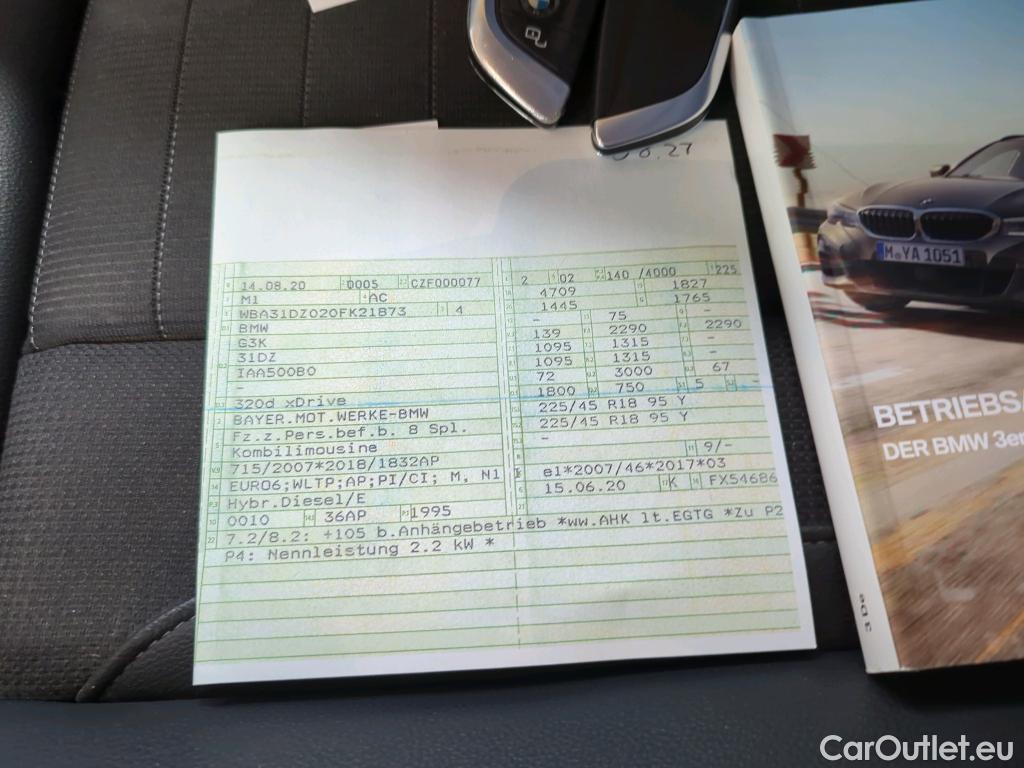 08.27
14.08.20 0005 CZF000077
M1 AC
WBA31DZ020FK21873 4
BMW
G3K
31DZ
IAA500B0
-
320d xDrive
BAYER.MOT.WERKE-BMW
Fz.z.Pers.bef.b. 8 Spl.
Kombilimousine
715/2007*2018/1832AP
EURO6;WLTP;AP;PI/CI; M, N1
Hybr.Diesel/E
0010 36AP 1995
2 02 140 /4000 225
4709 1827
1445 1765
- 75 -
139 2290 2290
1095 1315 -
1095 1315 -
72 3000 67
1800 750 5 -
225/45 R18 95 Y
225/45 R18 95 Y
-
-
9/-
e1*2007/46*2017*03
15.06.20 K FX54686
7.2/8.2: +105 b.Anhängebetrieb *ww.AHK lt.EGTG *Zu P2
P4: Nennleistung 2.2 kW *
M YA 1051
BETRIEBSA
DER BMW 3er
3 De
CarOutlet.eu